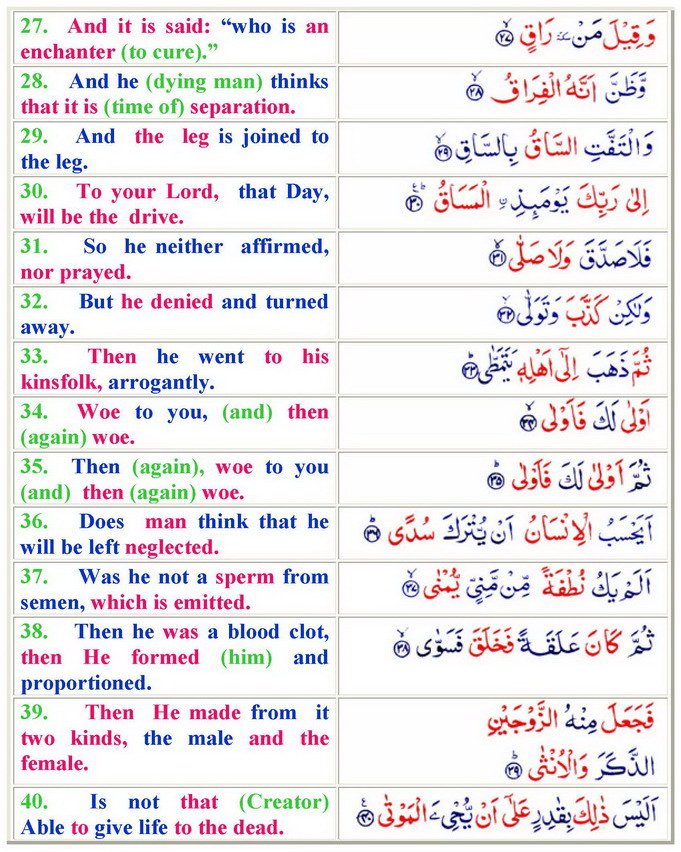 27. And it is said: “who is an
enchanter (to cure).”
وَقِيْلَ مَنْ ٚ رَاقٍ ﴿۲۷﴾
28. And he (dying man) thinks
that it is (time of) separation.
وَّظَنَّ اَنَّهُ الْفِرَاقُ ﴿۲۸﴾
29. And the leg is joined to
the leg.
وَالْتَفَّتِ السَّاقُ بِالسَّاقِ ﴿۲۹﴾
30. To your Lord, that Day,
will be the drive.
اِلٰى رَبِّكَ يَوْمَىِٕذِ ۨ الْمَسَاقُ ﴿۳۰﴾
31. So he neither affirmed,
nor prayed.
فَلَا صَدَّقَ وَلَا صَلّٰى ﴿۳۱﴾
32. But he denied and turned
away.
وَلٰكِنْ كَذَّبَ وَتَوَلّٰى ﴿۳۲﴾
33. Then he went to his
kinsfolk, arrogantly.
ثُمَّ ذَهَبَ اِلٰٓى اَهْلِهٖ يَتَمَطّٰى ﴿۳۳﴾
34. Woe to you, (and) then
(again) woe.
اَوْلٰى لَكَ فَاَوْلٰى ﴿۳۴﴾
35. Then (again), woe to you
(and) then (again) woe.
ثُمَّ اَوْلٰى لَكَ فَاَوْلٰى ﴿۳۵﴾
36. Does man think that he
will be left neglected.
اَيَحْسَبُ الْاِنْسَانُ اَنْ يُّتْرَكَ سُدًى ﴿۳۶﴾
37. Was he not a sperm from
semen, which is emitted.
اَلَمْ يَكُ نُطْفَةً مِّنْ مَّنِيٍّ يُّمْنٰى ﴿۳۷﴾
38. Then he was a blood clot,
then He formed (him) and
proportioned.
ثُمَّ كَانَ عَلَقَةً فَخَلَقَ فَسَوّٰى ﴿۳۸﴾
39. Then He made from it
two kinds, the male and the
female.
فَجَعَلَ مِنْهُ الزَّوْجَيْنِ
الذَّكَرَ وَالْاُنْثٰى ﴿۳۹﴾
40. Is not that (Creator)
Able to give life to the dead.
اَلَيْسَ ذٰلِكَ بِقٰدِرٍ عَلٰٓى اَنْ يُّحْيِۦَ الْمَوْتٰى ﴿۴۰﴾